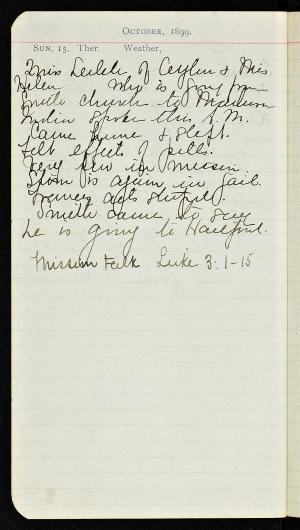 OCTOBER, 1899.
SUN, 15. Ther. Weather,
Miss Leitch of Ceylon & Miss
Helen who is going from
church to
India spoke this A.M.
Came home & slept.
Felt effects of pills.
Very few in mission.
is again in jail.
acts
Smith came to say
he is going to Hartford.
Mission Talk Luke 3:1-15